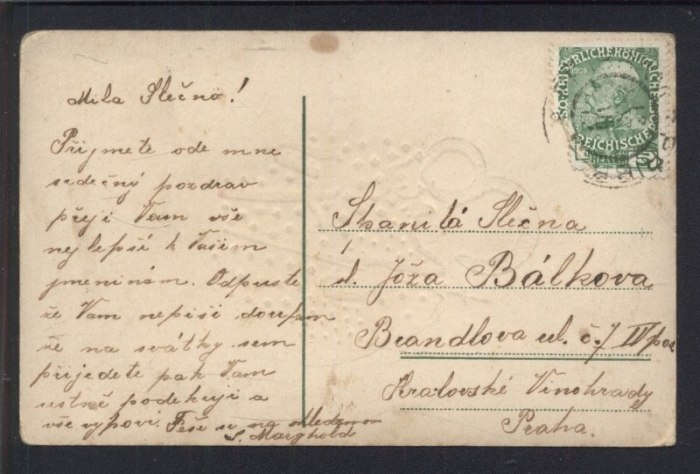 Milá Slečno!
Přijmete ode mne
srdečný pozdrav
přeji Vam vše
nejlepší k Vašim
jmeninám. Odpuste
že Vam nepiši doufam
že na svátky sem
přijedete pak Vam
ustně poděkuji a
vše vypoví. Těší se na
S. Marghold
Spanilá Slečna
sl. Joža Bálkova
Brandlova ul. č. 7 IV pos
Kralovské Vinohrady
Praha.
KAISERLICHE KÖNIGLICHE
ÖSTERREICHISCHE
5